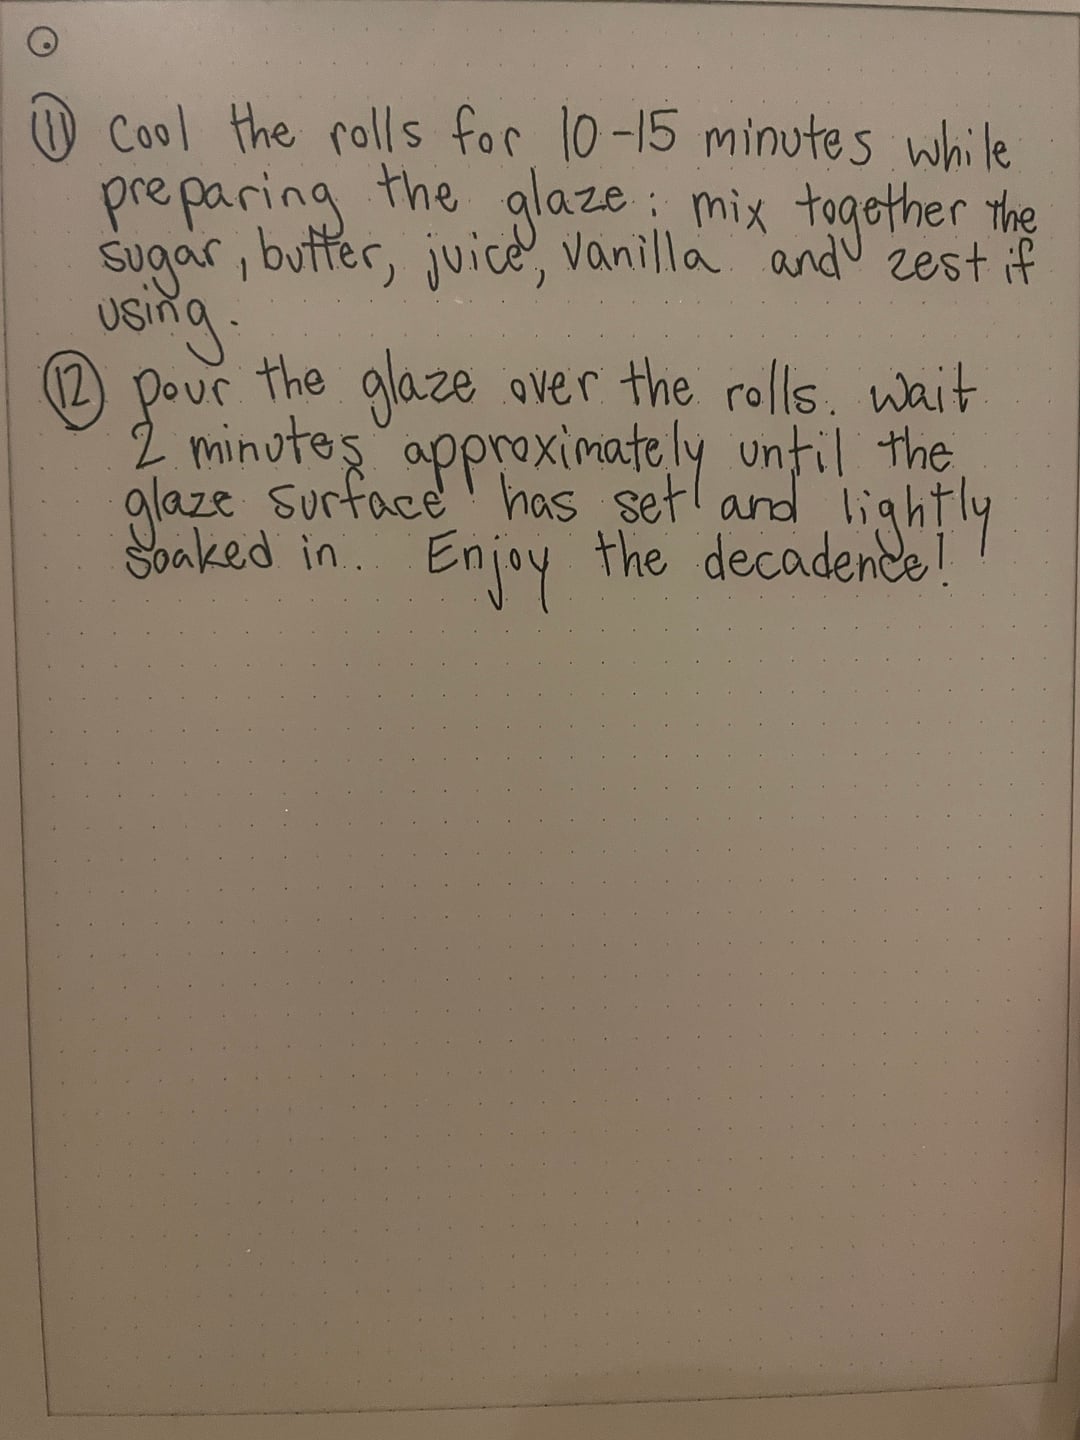 ⑪ Cool the rolls for 10-15 minutes while
preparing the glaze: mix together the
sugar, butter, juice, vanilla and zest if
using.
⑫ pour the glaze over the rolls. wait
2 minutes approximately until the
glaze surface has set and lightly
soaked in. Enjoy the decadence!